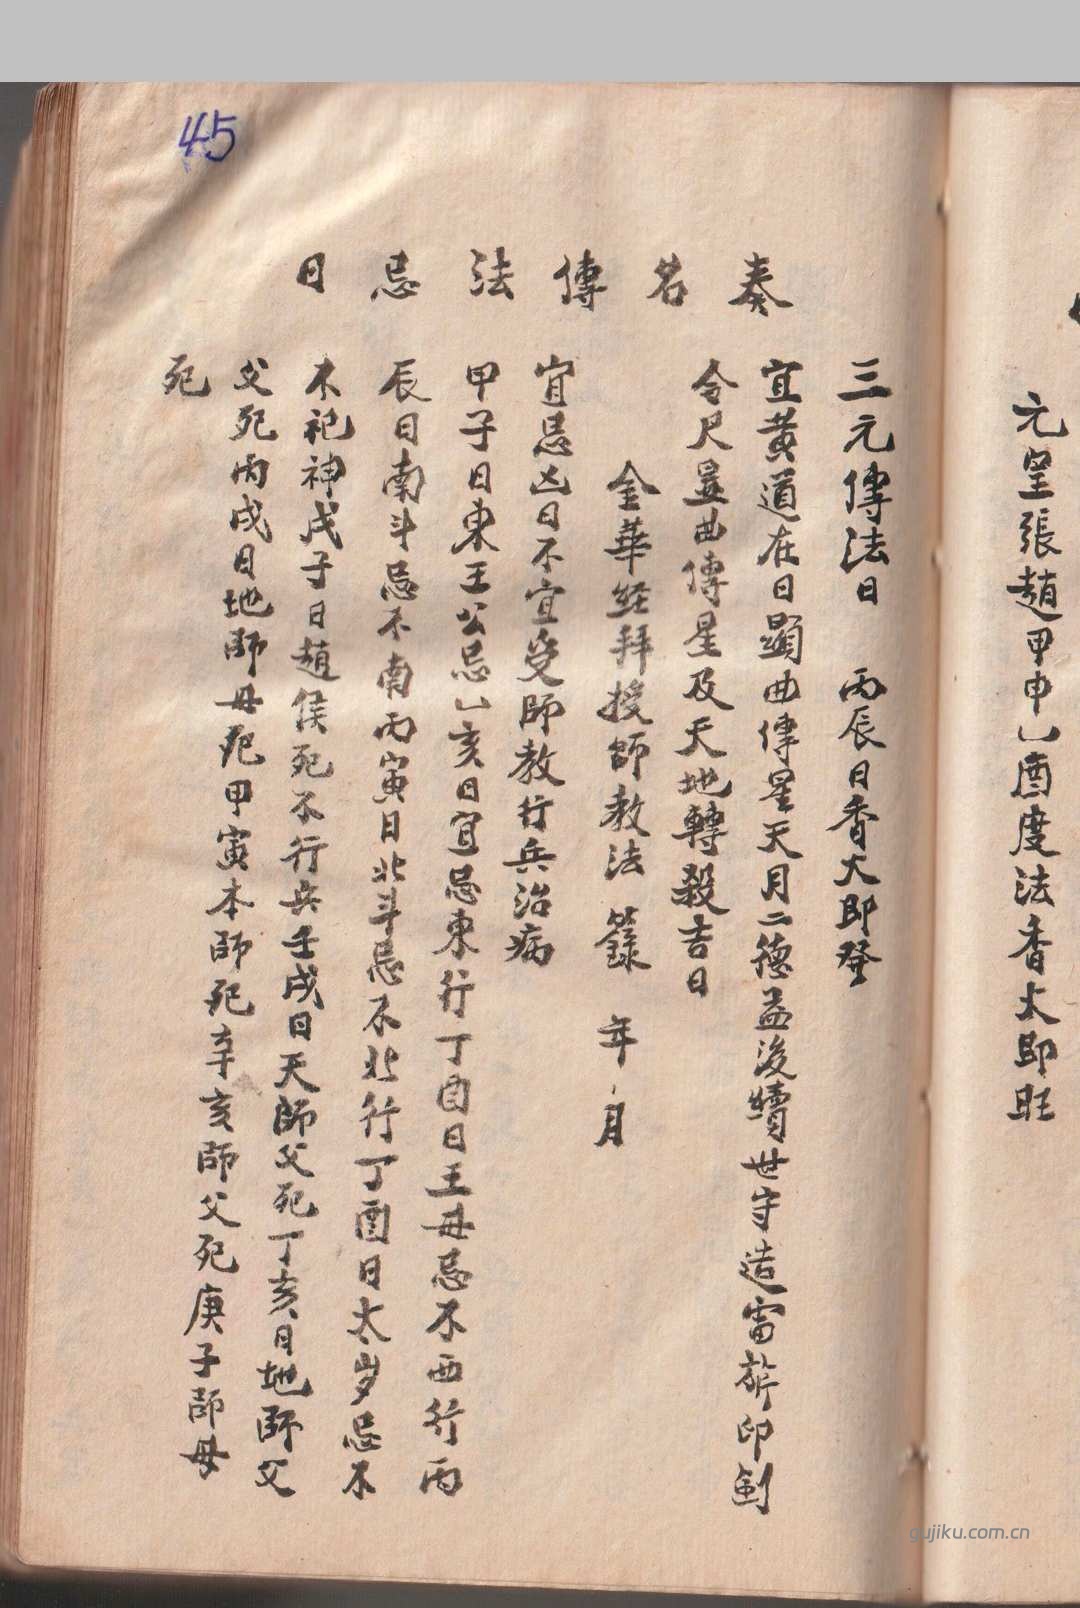 元皇張趙甲申乙酉度法香太即旺
45
奏名傳法忌日
三元傳法日 丙辰日香大即發
宜黃道在日顯曲傳星天月二德益後續世守造雷印剑
令尺显曲傳星及天地轉殺吉日
金華经拜授師教法籙 年 月
宜忌凶日不宜受師教行兵治病
甲子日東王公忌乙亥日宜忌東行丁酉日王母忌不西行丙
辰日南斗忌不南丙寅日北斗忌不北行丁酉日太岁忌不
不祀神戊子日趙侯死不行兵壬戌日天師父死丁亥日地師父
父死丙戌日地師母死甲寅本師死辛亥師父死庚子師母
死
gujiku.com.cn